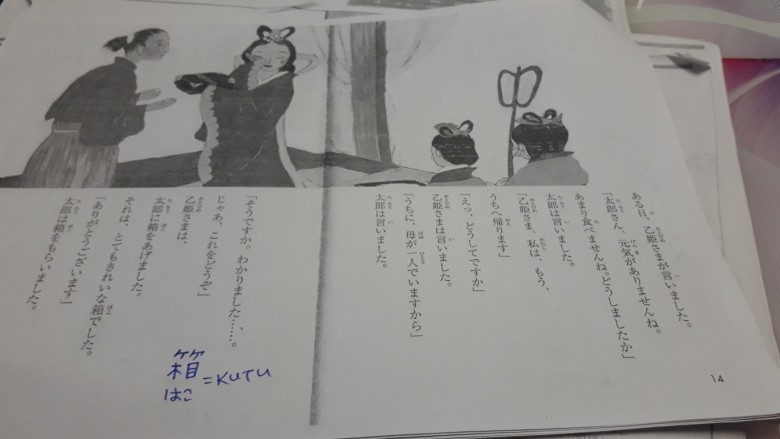 ある日、乙姫さまが言いました。
「太郎さん、元気がありませんね。
あまり食べませんね。どうしましたか」
太郎は言いました。
「乙姫さま、私は、もう、
うちへ帰ります」
「えっ、どうしてですか」
乙姫さまは言いました。
「うちに、母が一人でいますから」
太郎は言いました。
「そうですか。わかりました……。
じゃあ、これをどうぞ」
乙姫さまは、
太郎に箱をあげました。
それは、とてもきれいな箱でした。
「ありがとうございます」
太郎は箱をもらいました。
箱 = KUTU
はこ
14